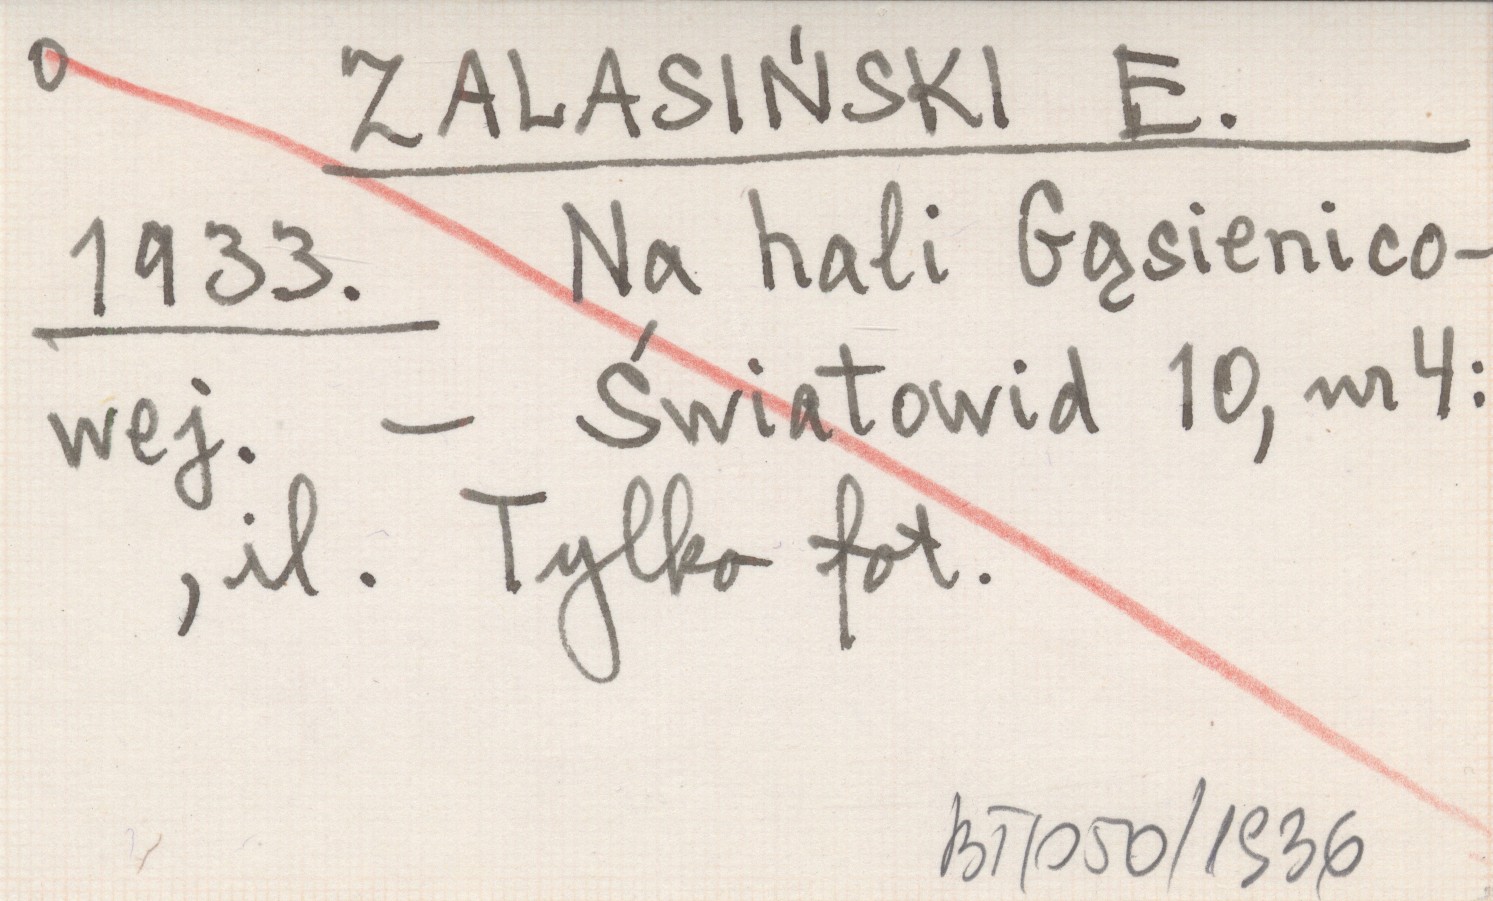 O ZALASIŃSKI E.
1933. Na hali Gąsienico-
wej. – Światowid 10, nr 4:
, il. Tylko fot.
BT/050/1936